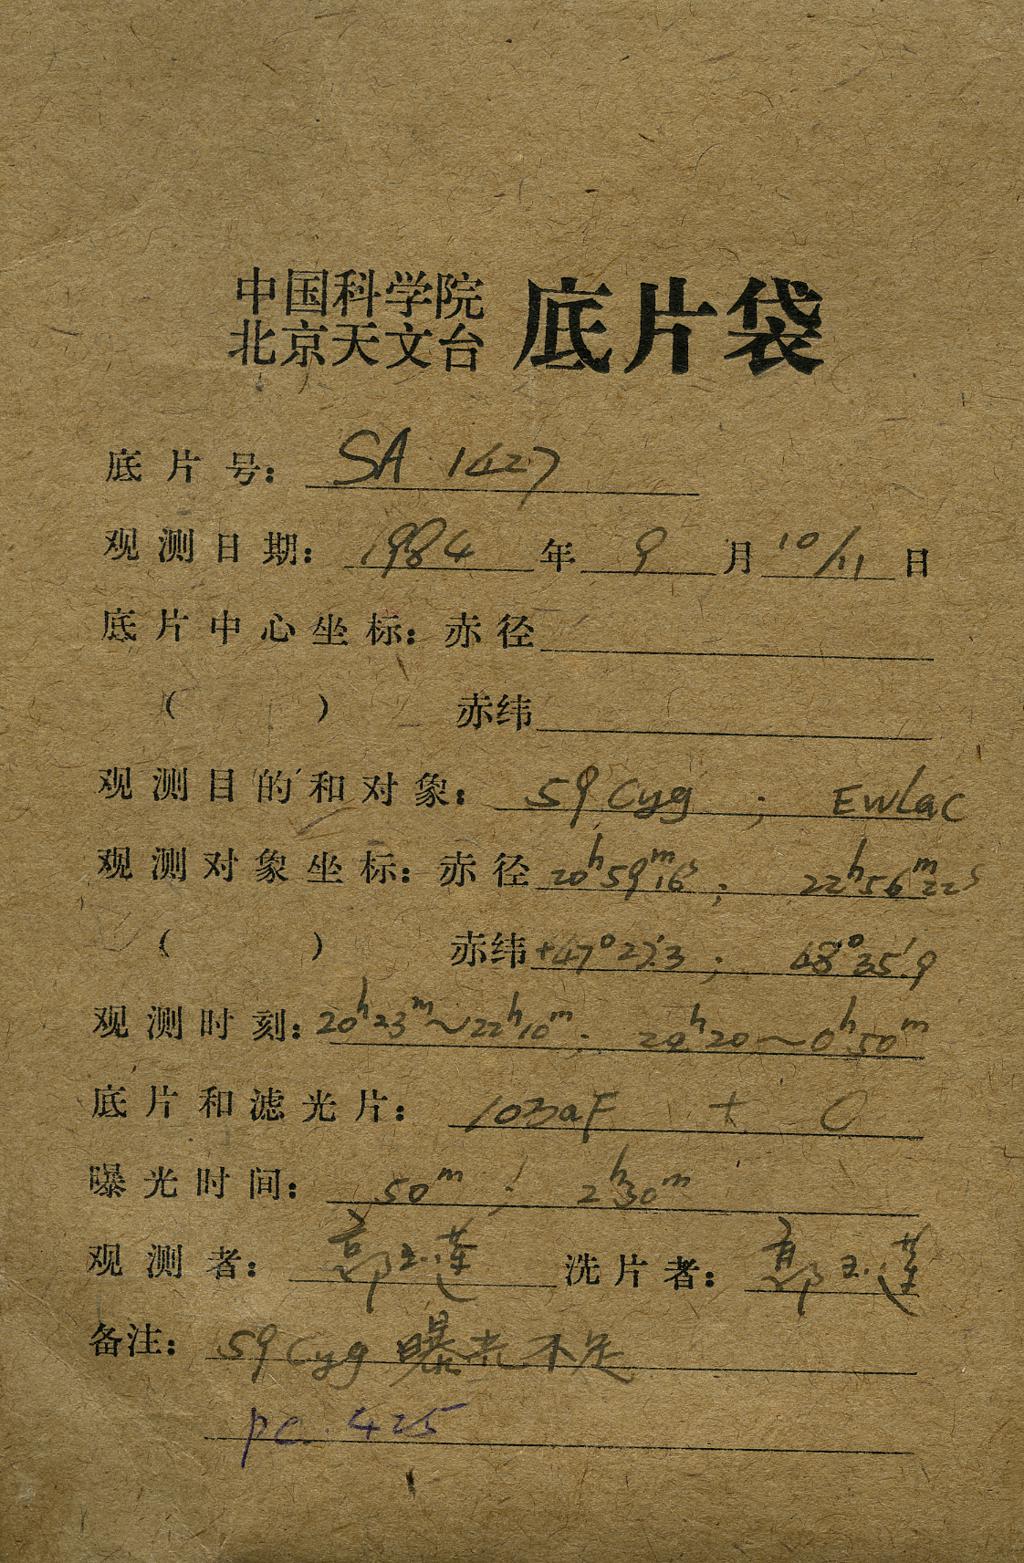 中国科学院
北京天文台 底片袋
底片号: SA 1427
观测日期: 1984 年 9 月 10/11 日
底片中心坐标: 赤径
( ) 赤纬
观测目的和对象: 59 Cyg ; EWLac
观测对象坐标: 赤径 20h59m16s ; 22h56m22s
( ) 赤纬 +47°27'.3 ; 48°35'.9
观测时刻: 20h23m~22h10m ; 22h20~0h50m
底片和滤光片: 103aF + C
曝光时间: 50m ; 2h30m
观测者: 郭玉莲 洗片者: 郭玉莲
备注: 59 Cyg 曝光不足
pc. 425